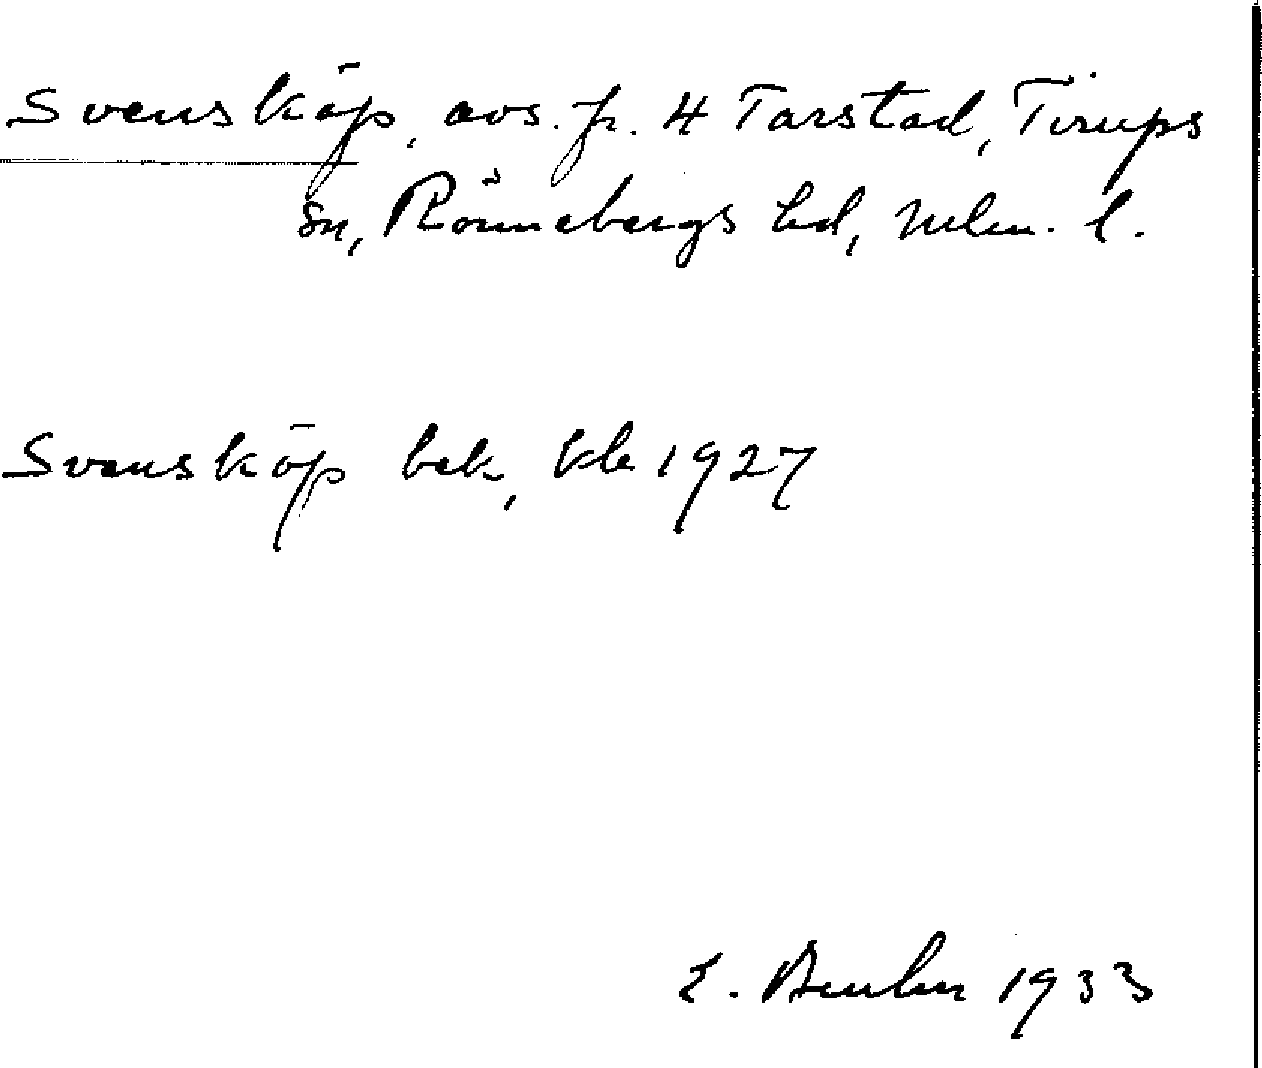 Svensköp, avs. fr. 4 Tarstad, Tirups
sn, Rönnebergs hd, Mlm. l.
Svensköp bek, kb 1927
E. 1933